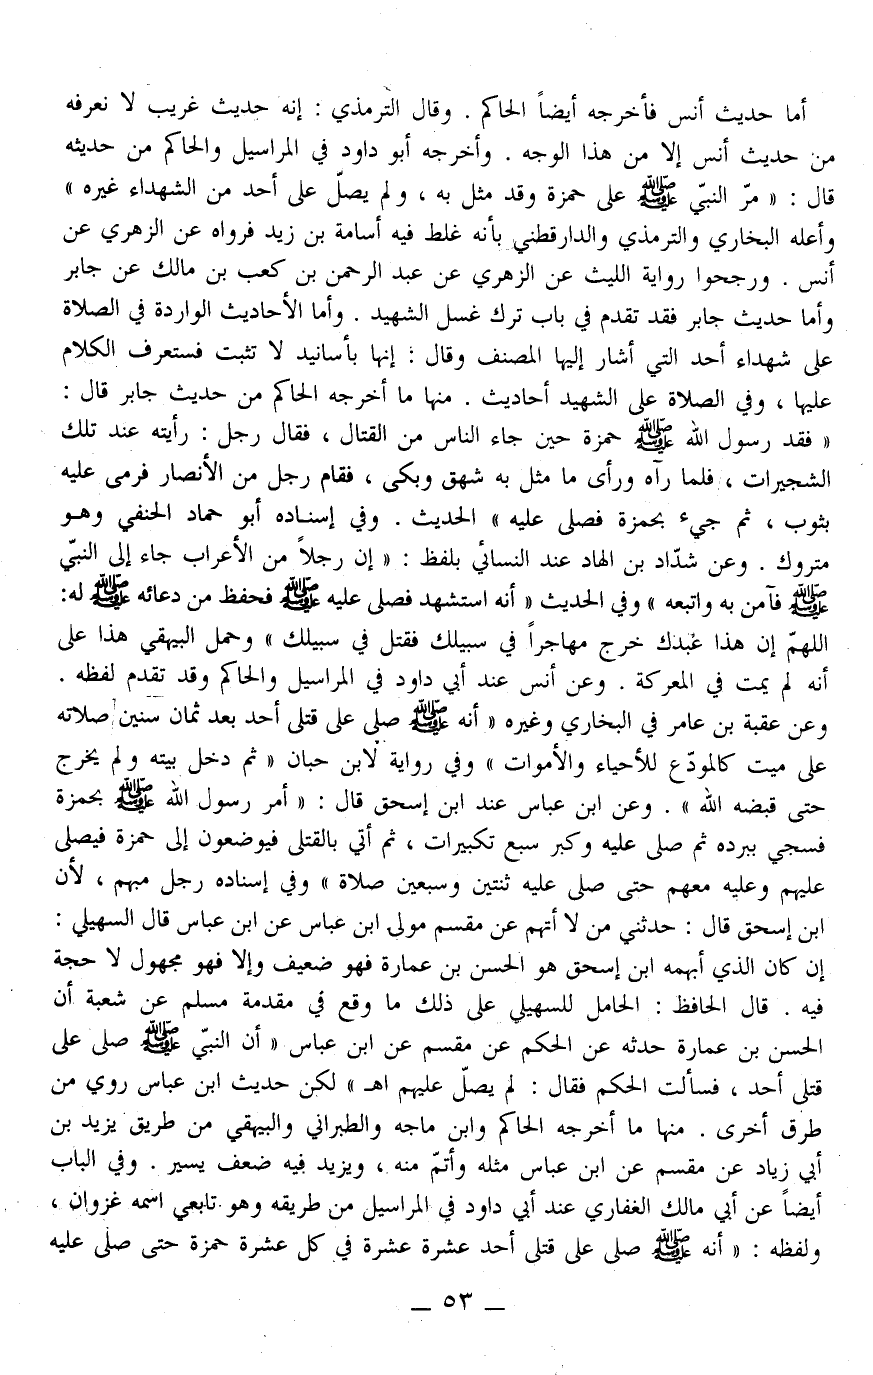 أما حديث أنس فأخرجه أيضاً الحاكم . وقال الترمذي : إنه حديث غريب لا نعرفه
من حديث أنس إلا من هذا الوجه . وأخرجه أبو داود في المراسيل والحاكم من حديثه
قال : « مرّ النبيّ ﷺ على حمزة وقد مثل به ، ولم يصلّ على أحد من الشهداء غيره »
وأعله البخاري والترمذي والدارقطني بأنه غلط فيه أسامة بن زيد فرواه عن الزهري عن
أنس . ورجحوا رواية الليث عن الزهري عن عبد الرحمن بن كعب بن مالك عن جابر
وأما حديث جابر فقد تقدم في باب ترك غسل الشهيد . وأما الأحاديث الواردة في الصلاة
على شهداء أحد التي أشار إليها المصنف وقال : إنها بأسانيد لا تثبت فستعرف الكلام
عليها ، وفي الصلاة على الشهيد أحاديث . منها ما أخرجه الحاكم من حديث جابر قال :
« فقد رسول الله ﷺ حمزة حين جاء الناس من القتال ، فقال رجل : رأيته عند تلك
الشجيرات ، فلما رآه ورأى ما مثل به شهق وبكى ، فقام رجل من الأنصار فرمى عليه
بثوب ، ثم جيء بحمزة فصلى عليه » الحديث . وفي إسناده أبو حماد الحنفي وهو
متروك . وعن شدّاد بن الهاد عند النسائي بلفظ : « إن رجلاً من الأعراب جاء إلى النبيّ
ﷺ فآمن به واتبعه » وفي الحديث « أنه استشهد فصلى عليه ﷺ فحفظ من دعائه ﷺ له:
اللهمّ إن هذا عبدك خرج مهاجراً في سبيلك فقتل في سبيلك » وحمل البيهقي هذا على
أنه لم يمت في المعركة . وعن أنس عند أبي داود في المراسيل والحاكم وقد تقدم لفظه .
وعن عقبة بن عامر في البخاري وغيره « أنه ﷺ صلى على قتلى أحد بعد ثمان سنين صلاته
على ميت كالمودّع للأحياء والأموات » وفي رواية لابن حبان « ثم دخل بيته ولم يخرج
حتى قبضه الله » . وعن ابن عباس عند ابن إسحق قال : « أمر رسول الله ﷺ بحمزة
فسجي ببرده ثم صلى عليه وكبر سبع تكبيرات ، ثم أتي بالقتلى فيوضعون إلى حمزة فيصلى
عليهم وعليه معهم حتى صلى عليه ثنتين وسبعين صلاة » وفي إسناده رجل مبهم ، لأن
ابن إسحق قال : حدثني من لا أتهم عن مقسم مولى ابن عباس عن ابن عباس قال السهيلي :
إن كان الذي أبهمه ابن إسحق هو الحسن بن عمارة فهو ضعيف وإلا فهو مجهول لا حجة
فيه . قال الحافظ : الحامل للسهيلي على ذلك ما وقع في مقدمة مسلم عن شعبة أن
الحسن بن عمارة حدثه عن الحكم عن مقسم عن ابن عباس « أن النبيّ ﷺ صلى على
قتلى أحد ، فسألت الحكم فقال : لم يصلّ عليهم اهـ » لكن حديث ابن عباس روي من
طرق أخرى . منها ما أخرجه الحاكم وابن ماجه والطبراني والبيهقي من طريق يزيد بن
أبي زياد عن مقسم عن ابن عباس مثله وأتمّ منه ، ويزيد فيه ضعف يسير . وفي الباب
أيضاً عن أبي مالك الغفاري عند أبي داود في المراسيل من طريقه وهو تابعي اسمه غزوان ،
ولفظه : « أنه ﷺ صلى على قتلى أحد عشرة عشرة في كل عشرة حمزة حتى صلى عليه
— ٥٣ —